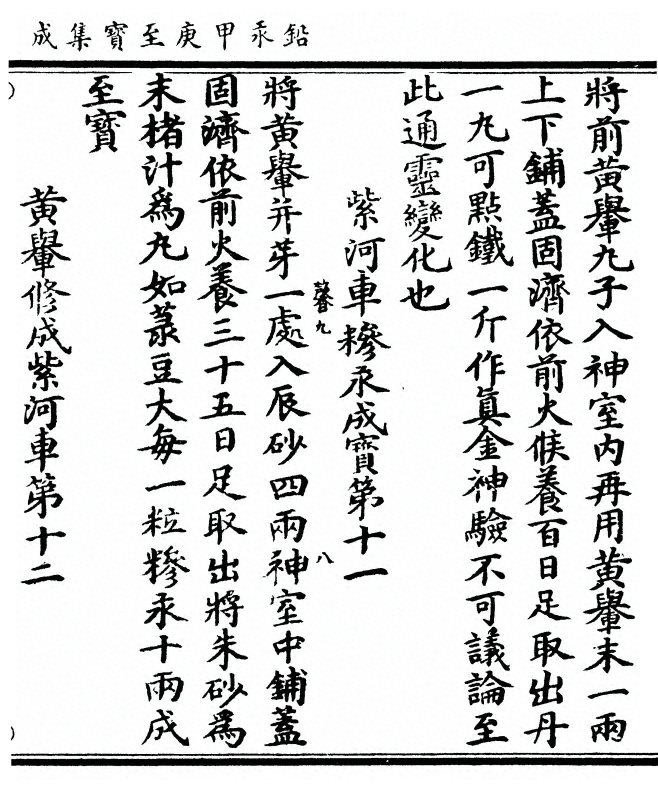 鉛汞甲庚至寶集成
將前黃轝丸子入神室內再用黃轝末一兩
上下鋪蓋固濟依前火候養百日足取出丹
一丸可點鐵一斤作眞金神驗不可議論至
此通靈變化也
紫河車糝汞成寶第十一
將黃轝并芽一處入辰砂四兩神室中鋪蓋
固濟依前火養三十五日足取出將朱砂爲
末楮汁爲丸如菉豆大每一粒糝汞十兩成
至寶
黃轝修成紫河車第十二
九
八